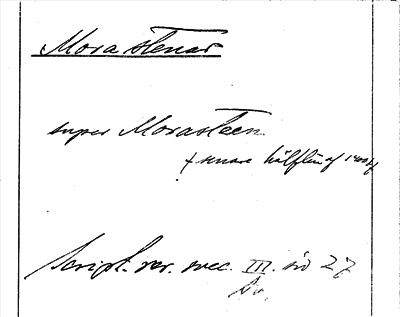 Mora stenar
super Morasteen
senare hälften af 1400 t
Script. rer. svec. III. sid 27